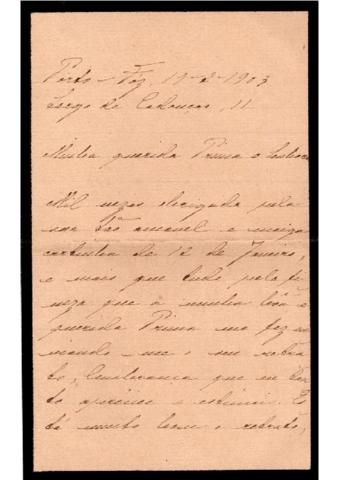 Porto - Foz, 19-2-1903
Largo de Cadouços, 11.
Minha querida Prima e Senhora
Mil vezes obrigada pela
sua tão amavel e meiga
cartinha de 12 de Janeiro,
e mais que tudo pela fi
neza que a minha boa e
querida Prima me fez en
viando-me o seu retra
to, lembrança que eu tan
to apreciei e estimei. Es
tá muito bom o retrato,